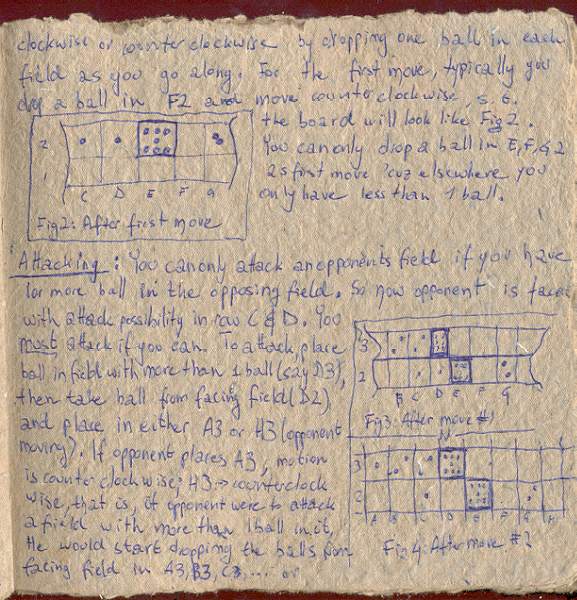 clockwise or counter clockwise by dropping one ball in each
field as you go along. For the first move, typically you
drop a ball in F2 and move counterclockwise, s.t.
the board will look like Fig 2.
You can only drop a ball in E,F,G 2
as first move 'cuz elsewhere you
only have less than 1 ball.
2
1
C D E F G
Fig 2: After first move
Attacking: You can only attack an opponents field if you have
1 or more ball in the opposing field. So now opponent is faced
with attack possibility in row C & D. You
must attack if you can. To attack, place
ball in field with more than 1 ball (say D3),
then take ball from facing field (D2)
and place in either A3 or H3 (opponent
moving). If opponent places A3, motion
is counter clockwise; H3 => counterclock
wise, that is, if opponent were to attack
a field with more than 1 ball in it,
He would start dropping the balls from
facing field in A3, B3, C3, ... or
3
2
B C D E F G
Fig 3: After move #1
3
2
A B C D E F G H
Fig 4: After move #2